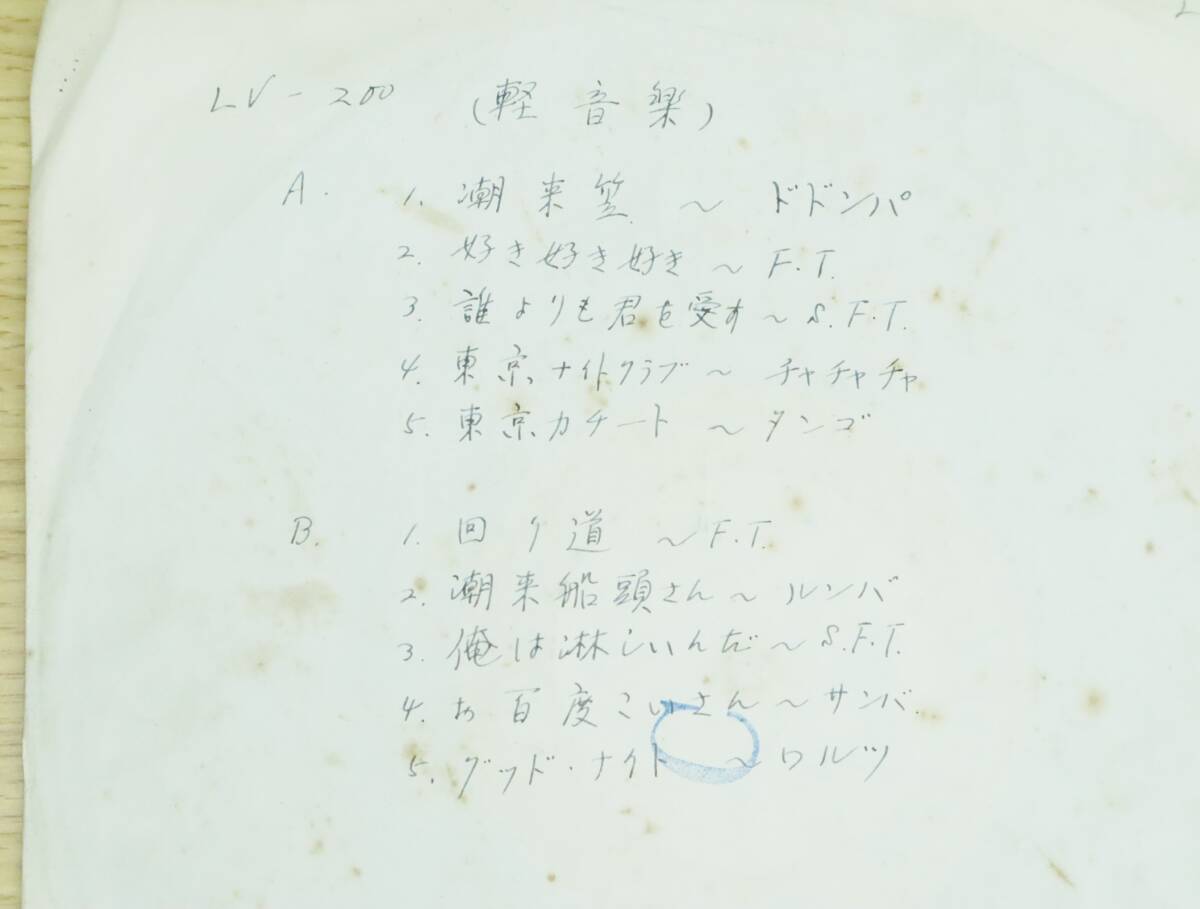 LV-200 (軽音楽)
A. 1. 潮来笠 ~ ドドンパ
2. 好き好き好き ~ F.T.
3. 誰よりも君を愛す ~ S.F.T.
4. 東京ナイトクラブ ~ チャチャチャ
5. 東京カチート ~ タンゴ
B. 1. 回り道 ~ F.T.
2. 潮来船頭さん ~ ルンバ
3. 俺は淋しいんだ ~ S.F.T.
4. お百度こいさん ~ サンバ.
5. グッド・ナイト ~ ワルツ